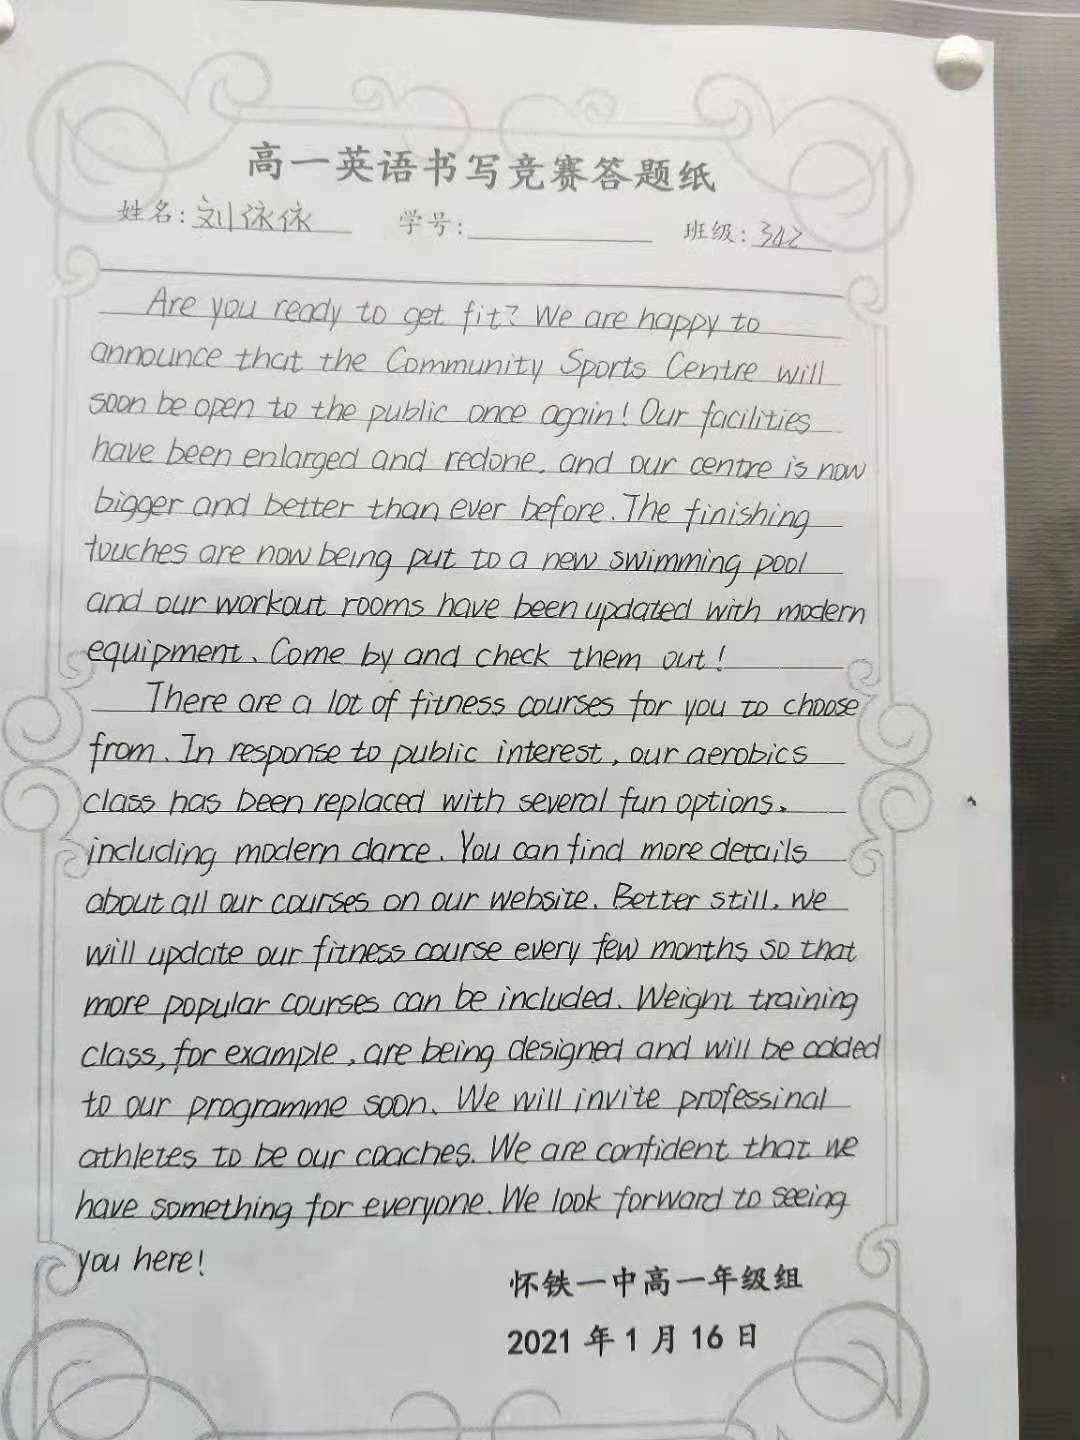 高一英语书写竞赛答题纸
姓名:刘泳依 学号: 班级:342
Are you ready to get fit? We are happy to
announce that the Community Sports Centre will
soon be open to the public once again! Our facilities
have been enlarged and redone, and our centre is now
bigger and better than ever before. The finishing
touches are now being put to a new swimming pool
and our workout rooms have been updated with modern
equipment. Come by and check them out!
There are a lot of fitness courses for you to choose
from. In response to public interest, our aerobics
class has been replaced with several fun options,
including modern dance. You can find more details
about all our courses on our website. Better still, we
will update our fitness course every few months so that
more popular courses can be included. Weight training
class, for example, are being designed and will be added
to our programme soon. We will invite professinal
athletes to be our coaches. We are confident that we
have something for everyone. We look forward to seeing
you here!
怀铁一中高一年级组
2021年1月16日